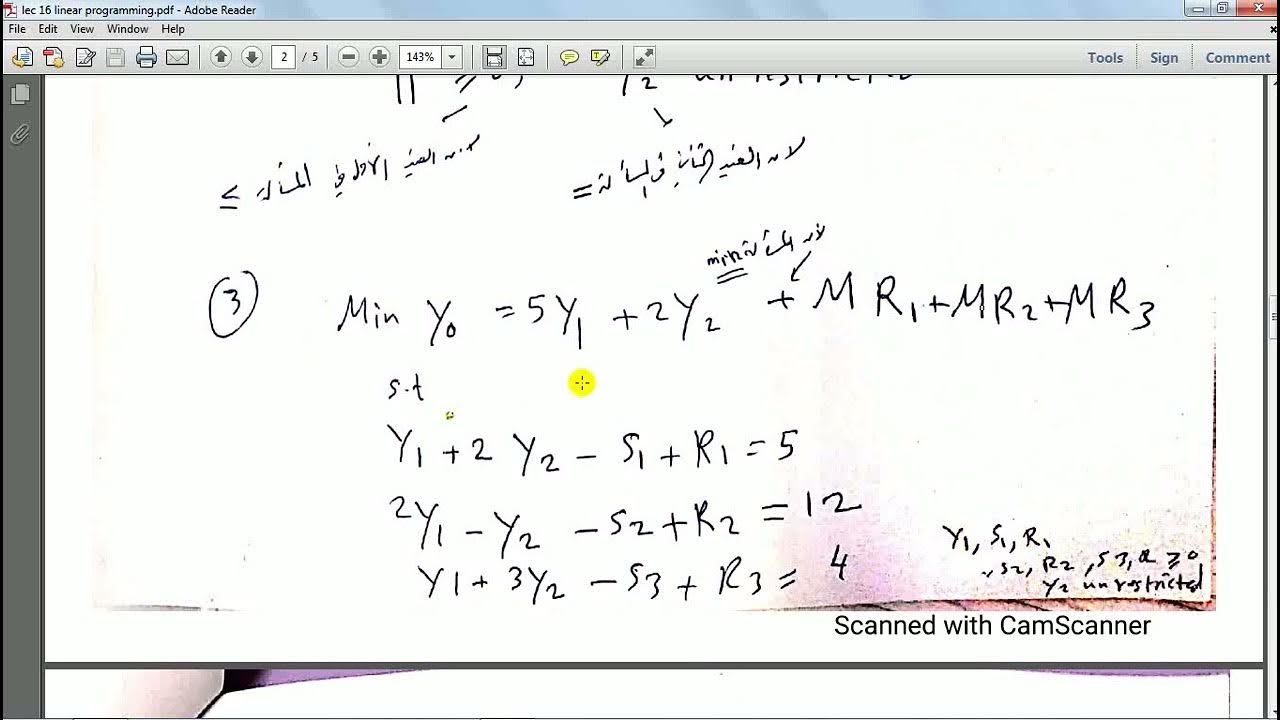 lec 16 linear programming.pdf - Adobe Reader
File Edit View Window Help
2 / 5 143% Tools Sign Comment
Y2 unrestricted
لانه القيد الأول في المسألة ≤
لانه القيد الثاني في المسألة =
لأنه المسألة min
③ Min Y0 = 5Y1 + 2Y2 + M R1 + M R2 + M R3
s.t
Y1 + 2 Y2 - S1 + R1 = 5
2Y1 - Y2 - S2 + R2 = 12
Y1 + 3Y2 - S3 + R3 = 4
Y1, S1, R1
, S2, R2, S3, R ≥ 0
Y2 unrestricted
Scanned with CamScanner